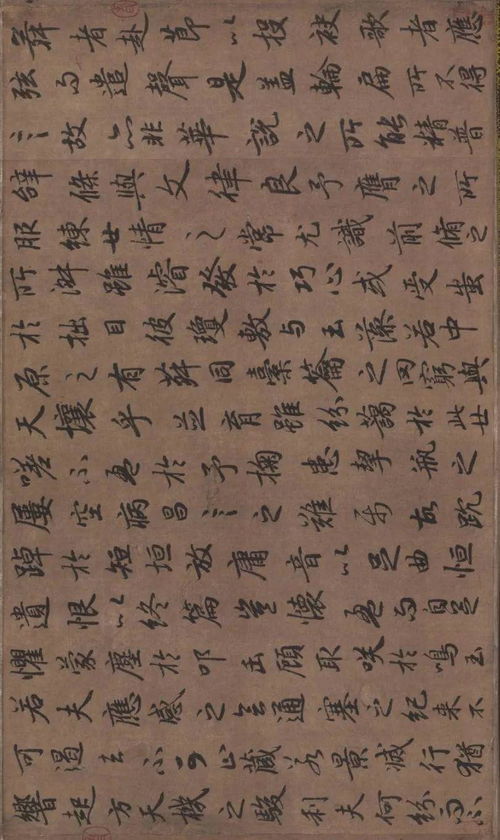 舞者赴節以投袂歌者應
弦而遣聲是蓋輪扁所不得
言故亦非華說之所能精普
辭條與文律良予膺之所
服練世情之常尤識前脩之
所淑雖濬發於巧心或受蚩
於拙目彼瓊敷與玉藻若中
原之有菽同橐籥之罔窮與
天壤乎並育雖紛藹於此世
嗟不盈於予掬患挈瓶之
屢空病昌言之難屬故踸
踔於短垣放庸音以足曲恒
遺恨以終篇豈懷盈而自足
懼蒙塵於叩缶顧取咲於鳴玉
若夫應感之會通塞之紀來不
可遏去不可止藏若景滅行猶
響起方天機之駿利夫何紛而不